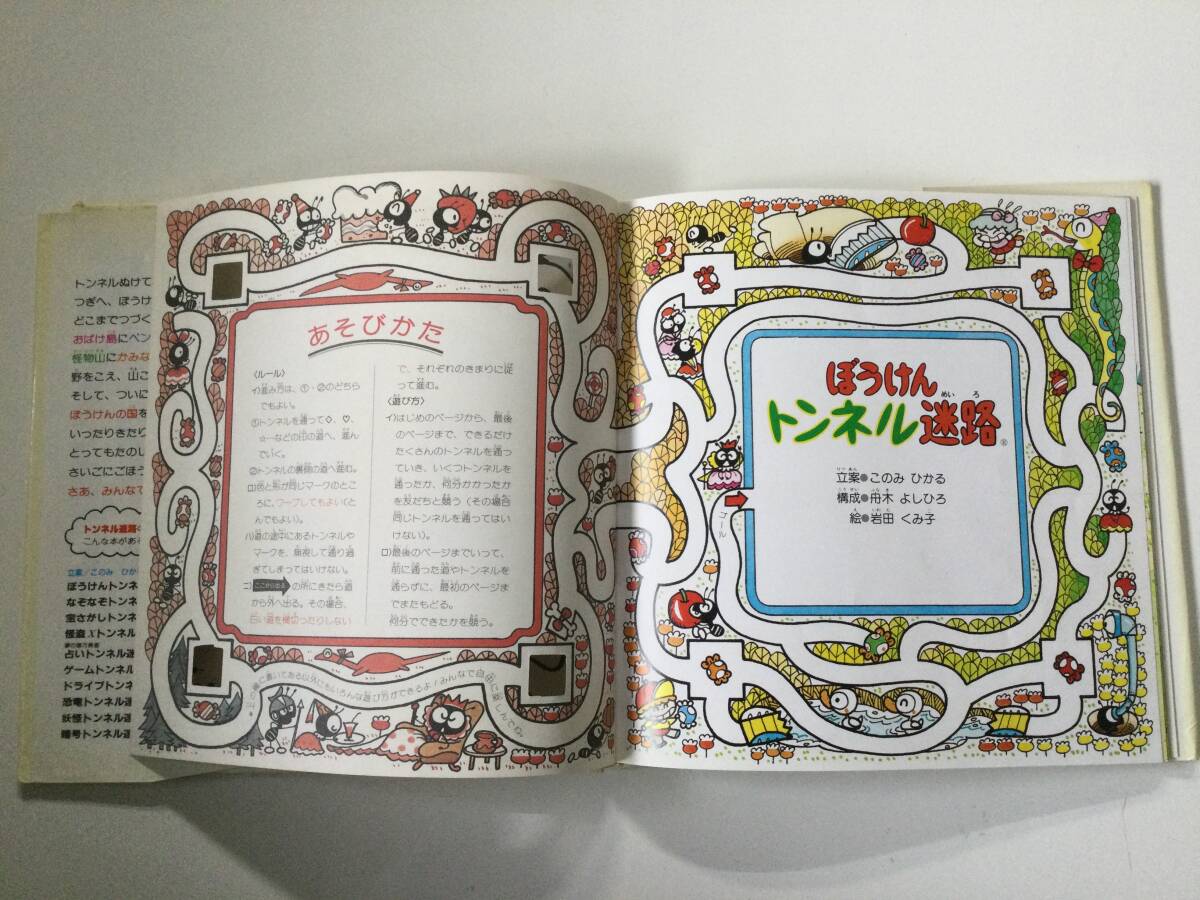 トンネルぬけて
つぎへ、ぼうけ
どこまでつづく
おばけ島にペン
怪物山にかみな
野をこえ、山こ
そして、ついに
ぼうけんの国を
いったりきたり
とってもたのし
さいごにごほう
さあ、みんなで
トンネル迷路
こんな本があ
立案/このみ ひか
ぼうけんトンネ
なぞなぞトンネ
宝さがしトンネ
怪盗Xトンネル
占いトンネル迷
ゲームトンネル
ドライブトンネ
恐竜トンネル迷
妖怪トンネル迷
暗号トンネル迷
あそびかた
〈ルール〉
イ)進み方は、①・②のどちら
でもよい。
①トンネルを通って◇、♡、
☆…などの印の道へ、進ん
でいく。
②トンネルの裏側の道へ進む。
ロ)色と形が同じマークのとこ
ろに、ワープしてもよい(と
んでもよい)。
ハ)道の途中にあるトンネルや
マークを、無視して通り過
ぎてしまってはいけない。
ニ)ここから出る の所にきたら道
から外へ出る。その場合、
白い道を横切ったりしない
で、それぞれのきまりに従
って進む。
〈遊び方〉
イ)はじめのページから、最後
のページまで、できるだけ
たくさんのトンネルを通っ
ていき、いくつトンネルを
通ったか、何分かかったか
を友だちと競う(その場合
同じトンネルを通ってはい
けない)。
ロ)最後のページまでいって、
前に通った道やトンネルを
通らずに、最初のページま
でまたもどる。
何分でできたかを競う。
に書いてある以外にもいろんな遊び方ができるよ!みんなで自由に楽しんでね。
ぼうけん
トンネル迷路®
めいろ
立案●このみ ひかる
構成●舟木 よしひろ
絵●岩田 くみ子
ゴール